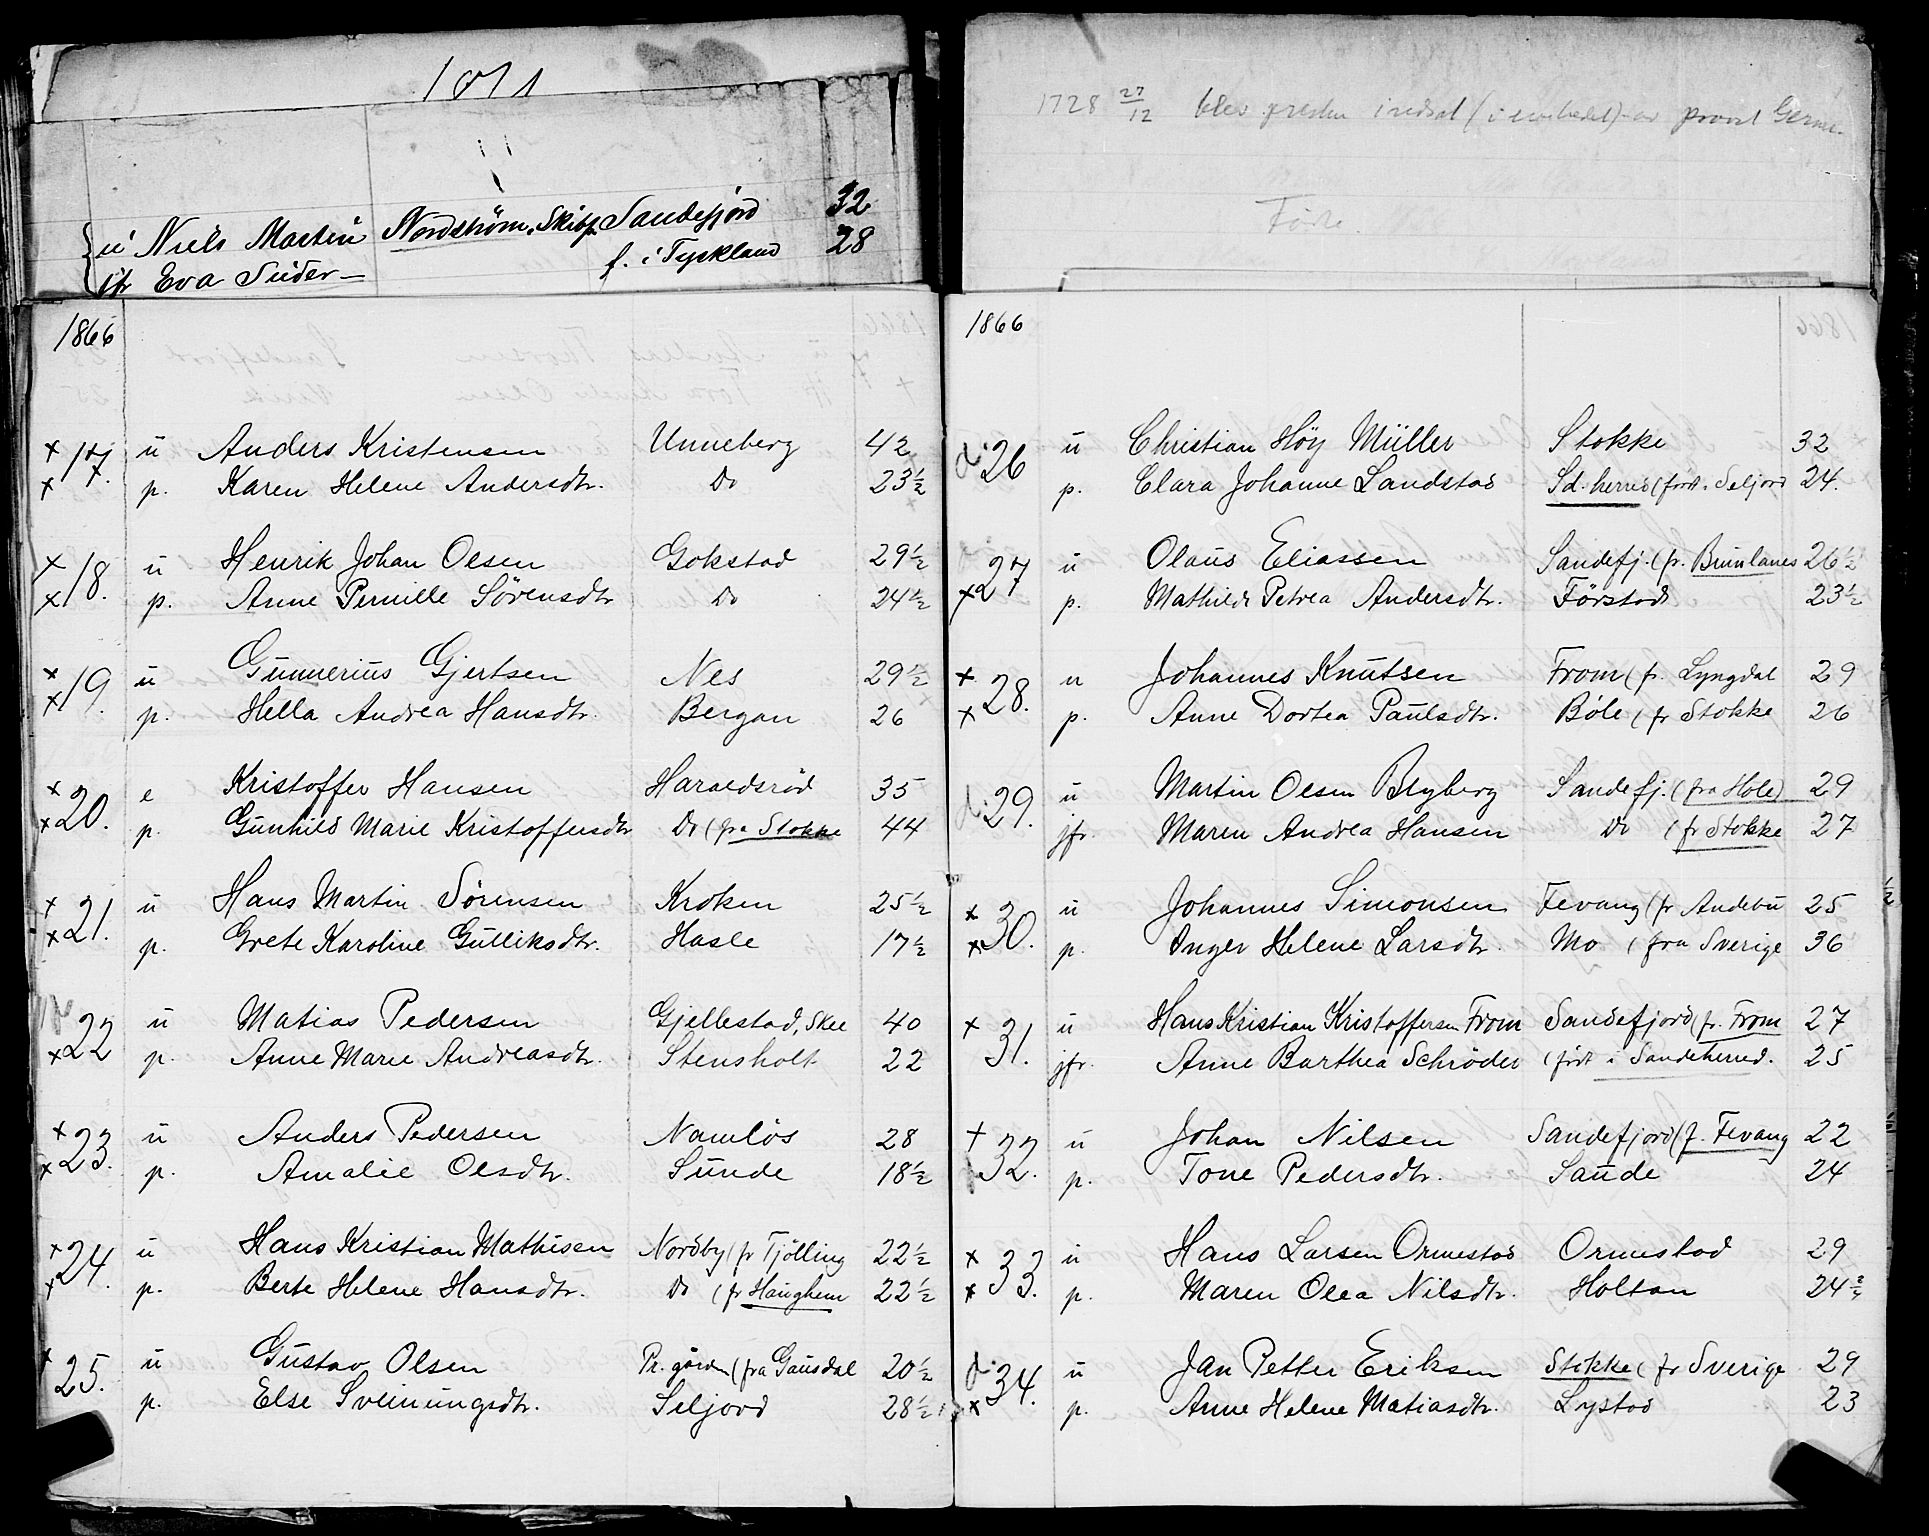 1871
u Niels Martin Nordström, Skibsf. Sandefjord 32
jfr Eva Suder — f. i Tyskland 28
1866
17. u Anders Kristensen Unneberg 42
p. Karen Helene Andersdtr. Do 23½
18. u Henrik Johan Olsen Gokstad 29½
p. Anne Pernille Sörensdtr Do 24½
19. u Gunnerius Gjertsen Nes 29½
p. Hella Andrea Hansdtr. Bergan 26
20. e Kristoffer Hansen Haraldsröd 35
p. Gunhild Marie Kristoffersdtr Do (fra Stokke 44
21. u Hans Martin Sörensen Kroken 25½
p. Grete Karoline Gulliksdtr. Hasle 17½
22 u Matias Pedersen Gjellestad, Skee 40
p. Anne Marie Andreasdtr. Stensholt 22
23. u Anders Pedersen Namlös 28
p. Amalie Olsdtr. Sunde 18½
24. u Hans Kristian Mathisen Nordby (fr Tjölling 22½
p. Berte Helene Hansdtr. Do (fr Haughem 22½
25. u Gustav Olsen Pr. gården (fra Gausdal 20½
p. Else Sveinungsdtr. Seljord 28½
1728 27/12 blev presten indsat (i embedet) av provst
Födte.
1866
d. 26 u Christian Höy Müller Stokke 32
p. Clara Johanne Landstad Sd. herred (född i Seljord 24.
27 u Olaus Eliassen Sandefj. (fr. Brunlanes 26½
p. Mathilde Petrea Andersdtr. Förstad 23½
28. u Johannes Knutsen From (fr. Lyngdal 29
p. Anne Dortea Paulsdtr. Böle (fr Stokke 26
d. 29. u Martin Olsen Blyberg Sandefj. (fra Hole) 29
jfr. Maren Andrea Hansen Do (fr Stokke 27
30. u Johannes Simonsen Fevang (fr Andebu 25
p. Inger Helene Larsdtr. Mo (fra Sverige 36
31. u Hans Kristian Kristoffersen From Sandefjord (fr. From 27
jfr. Anne Barthea Schröder (född i Sandeherred. 25
32. u Johan Nilsen Sandefjord (f. Fevang 22
p. Tone Pedersdtr. Saude 24
33. u Hans Larsen Ormestad Ormestad 29
p. Maren Olea Nilsdtr. Holtan 24½
d. 34. u Jan Petter Eriksen Stokke (fr Sverige 29
p. Anne Helene Matiasdtr. Lystad 23